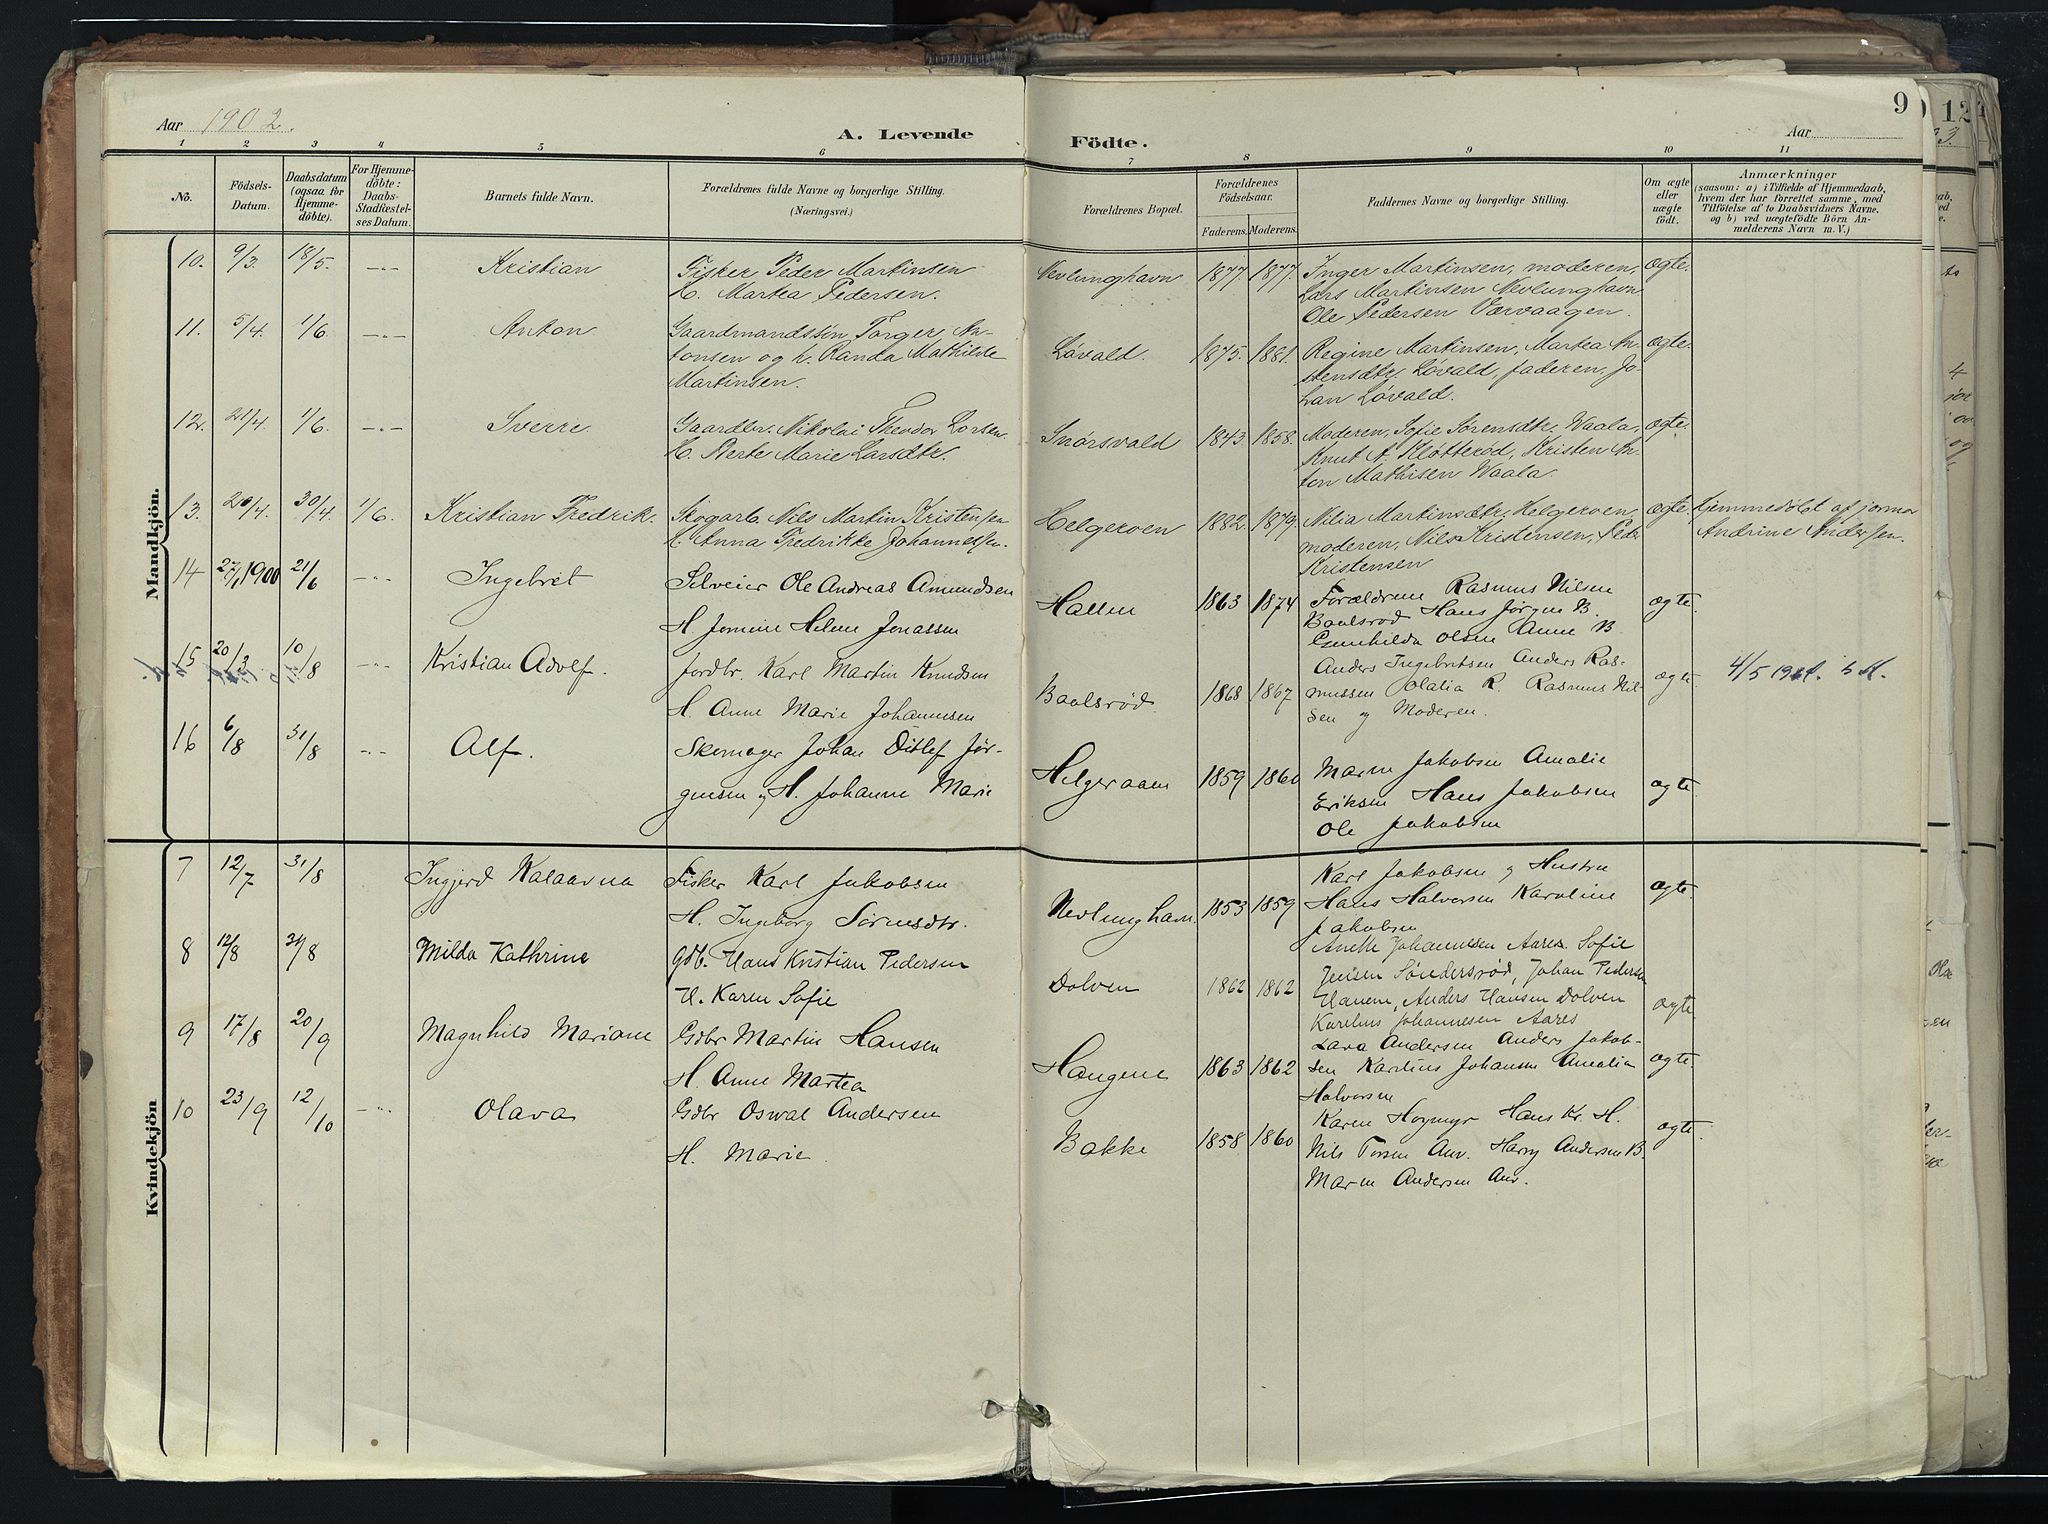 Aar 1902.
A. Levende
Födte.
Aar
9
12
1 2 3 4 5 6 7 8 9 10 11
No. Födsels-Datum. Daabsdatum (ogsaa for Hjemmedöbte). For Hjemmedöbte: Daabs-Stadfæstelses Datum. Barnets fulde Navn. Forældrenes fulde Navne og borgerlige Stilling. (Næringsvei.) Forældrenes Bopæl. Forældrenes Födselsaar. Faderens. Moderens. Faddernes Navne og borgerlige Stilling. Om ægte eller uægte födt. Anmærkninger (saasom: a) i Tilfælde af Hjemmedaab, hvem der har forrettet samme, med Tilföielse af to Daabsvidners Navne, og b) ved uægtefödte Börn Anmelderens Navn m. V.)
Mandkjön.
10. 9/3. 18/5. —"— Kristian Fisker Peder Martinsen Nevlunghavn 1877. 1877. Inger Martinsen, moderen, ægte.
H. Martea Pedersen. Lars Martinsen Nevlunghavn
Ole Pedersen Værvaagen.
11. 5/4. 1/6. —"— Anton Gaardmandssøn Torger An- Løvald. 1875. 1881. Regine Martinsen, Martea An- ægte.
tonsen og h. Randa Mathilde stensdtr. Løvald, faderen, Jo-
Martinsen. han Løvald.
12. 21/4. 1/6. —"— Sverre Gaardbr. Nikolai Theodor Larsen Snørsvald 1843. 1858. Moderen, Sofie Sørensdtr. Waala, ægte.
H. Berte Marie Larsdtr. Knut A. Kløtterød, Kristen An-
ton Mathisen Waala.
13. 20/4. 30/4. 1/6. Kristian Fredrik. Skogarb. Nils Martin Kristensen Helgeroen 1882. 1879. Nilia Martinsdtr. Helgeroen, ægte. Hjemmedøbt af jormor
H. Anna Fredrikke Johannessen. moderen, Nils Kristensen, Peder Andrine Andersen.
Kristensen
14 27/1 1900 21/6 —"— Ingebret Selveier Ole Andreas Amundsen Hallen 1863 1874 Forældrene Rasmus Nilsen ægte.
H. Jomine Helene Jonassen Baalsrød Hans Jørgen B.
Gunhilda Olsen Anne B
15 20/3 10/8 —"— Kristian Adolf. Jordbr. Karl Martin Knudsen Baalsrød. 1868 1867 Anders Ingebritsen Anders Ras- ægte 4/5
H. Anne Marie Johannesen mussen Olalia R. Rasmus Nil-
sen og Moderen.
16 6/8 31/8 —"— Alf. Skomager Johan Ditlef Jør- Helgeraaen 1859 1860 Maren Jakobsen Amalie ægte.
gensen og H. Johanne Marie Eriksen Hans Jakobsen
Ole Jakobsen
Kvindekjön
7 12/7 31/8 Ingjerd Kalaavna Fisker Karl Jakobsen Nevlunghavn. 1853 1859 Karl Jakobsen og Hustru ægte.
H. Ingeborg Sørensdtr. Hans Halvorsen Karoline
Jakobsen
8 12/8 31/8 Milda Kathrine Gdb. Hans Kristian Pedersen Dolven 1862 1862 Anette Johannesen Aares Sofie
H. Karen Sofie Jensen Søndersrød, Johan Pedersen
Hanene, Anders Hansen Dolven ægte
Karelius Johannesen Aares
9 17/8 20/9 Magnhild Mariane Gdbr Martin Hansen Haugene 1863 1862 Lava Andersen Anders Jakob- ægte.
H. Anne Martea sen Karelius Johansen Amalia
Halvorsen
10 23/9 12/10 —"— Olava Gdbr Oswal Andersen Bakke 1858 1860 Karen Hogmyr Hans Kr. H. ægte.
H. Marie. Nils Torsen Anv. Harry Andersen B.
Maren Andersen Anv.